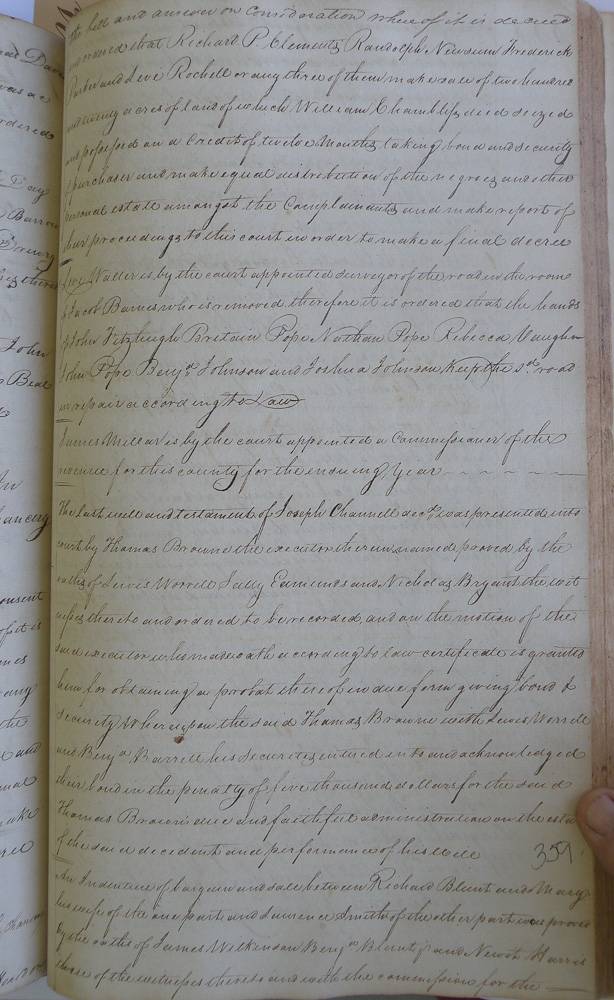 the bill and answer on consideration whereof it is decreed
and ordered that Richard P. Clements Randolph Newsum Frederick
Parker and Levi Rochell or any three of them make sale of two hundred
and acres of land of which William Chambliss died seized
and possessed on a Credit of twelve Months taking bond and security
of purchaser and make equal distribution of the negroes and other
personal estate amongst the Complainants and make report of
their proceedings to this court in order to make a final decree
Waller is by the court appointed surveyor of the road in the room
of Jacob Barnes who is removed therefore it is ordered that the hands
of John Fitzhugh Britain Pope Nathan Pope Rebecca Vaughn
John Pope Benjn. Johnson and Joshua Johnson Keep the sd. road
in repair according to Law
James Millar is by the court appointed a Commissioner of the
revenue for this county for the ensuing Year
The last will and testament of Joseph Channell decd. was presented into
court by Thomas Browne the executor therein named proved by the
oaths of Lewis Worrell Sally Edmunds and Nicholas Bryant the wit
nesses thereto and ordered to be recorded, and on the motion of the
said executor who made oath according to law certificate is granted
him for obtaining a probat thereof in due form giving bond &
Security Whereupon the said Thomas Browne with Lewis Worrell
and Benjn. Barrell his securities entered into and acknowledged
their bond in the penalty of five thousand dollars for the said
Thomas Browns due and faithful administration on the esta
of the said decedent and performance of his Will
359
An Indenture of bargain and sale between Richard Blunt and Mary
his wife of the one part and Lawrence Smith of the other part was proved
by the oaths of James Wilkinson Benjn. Blunt and Newit Harris
three of the witnesses thereto and with the commission for the